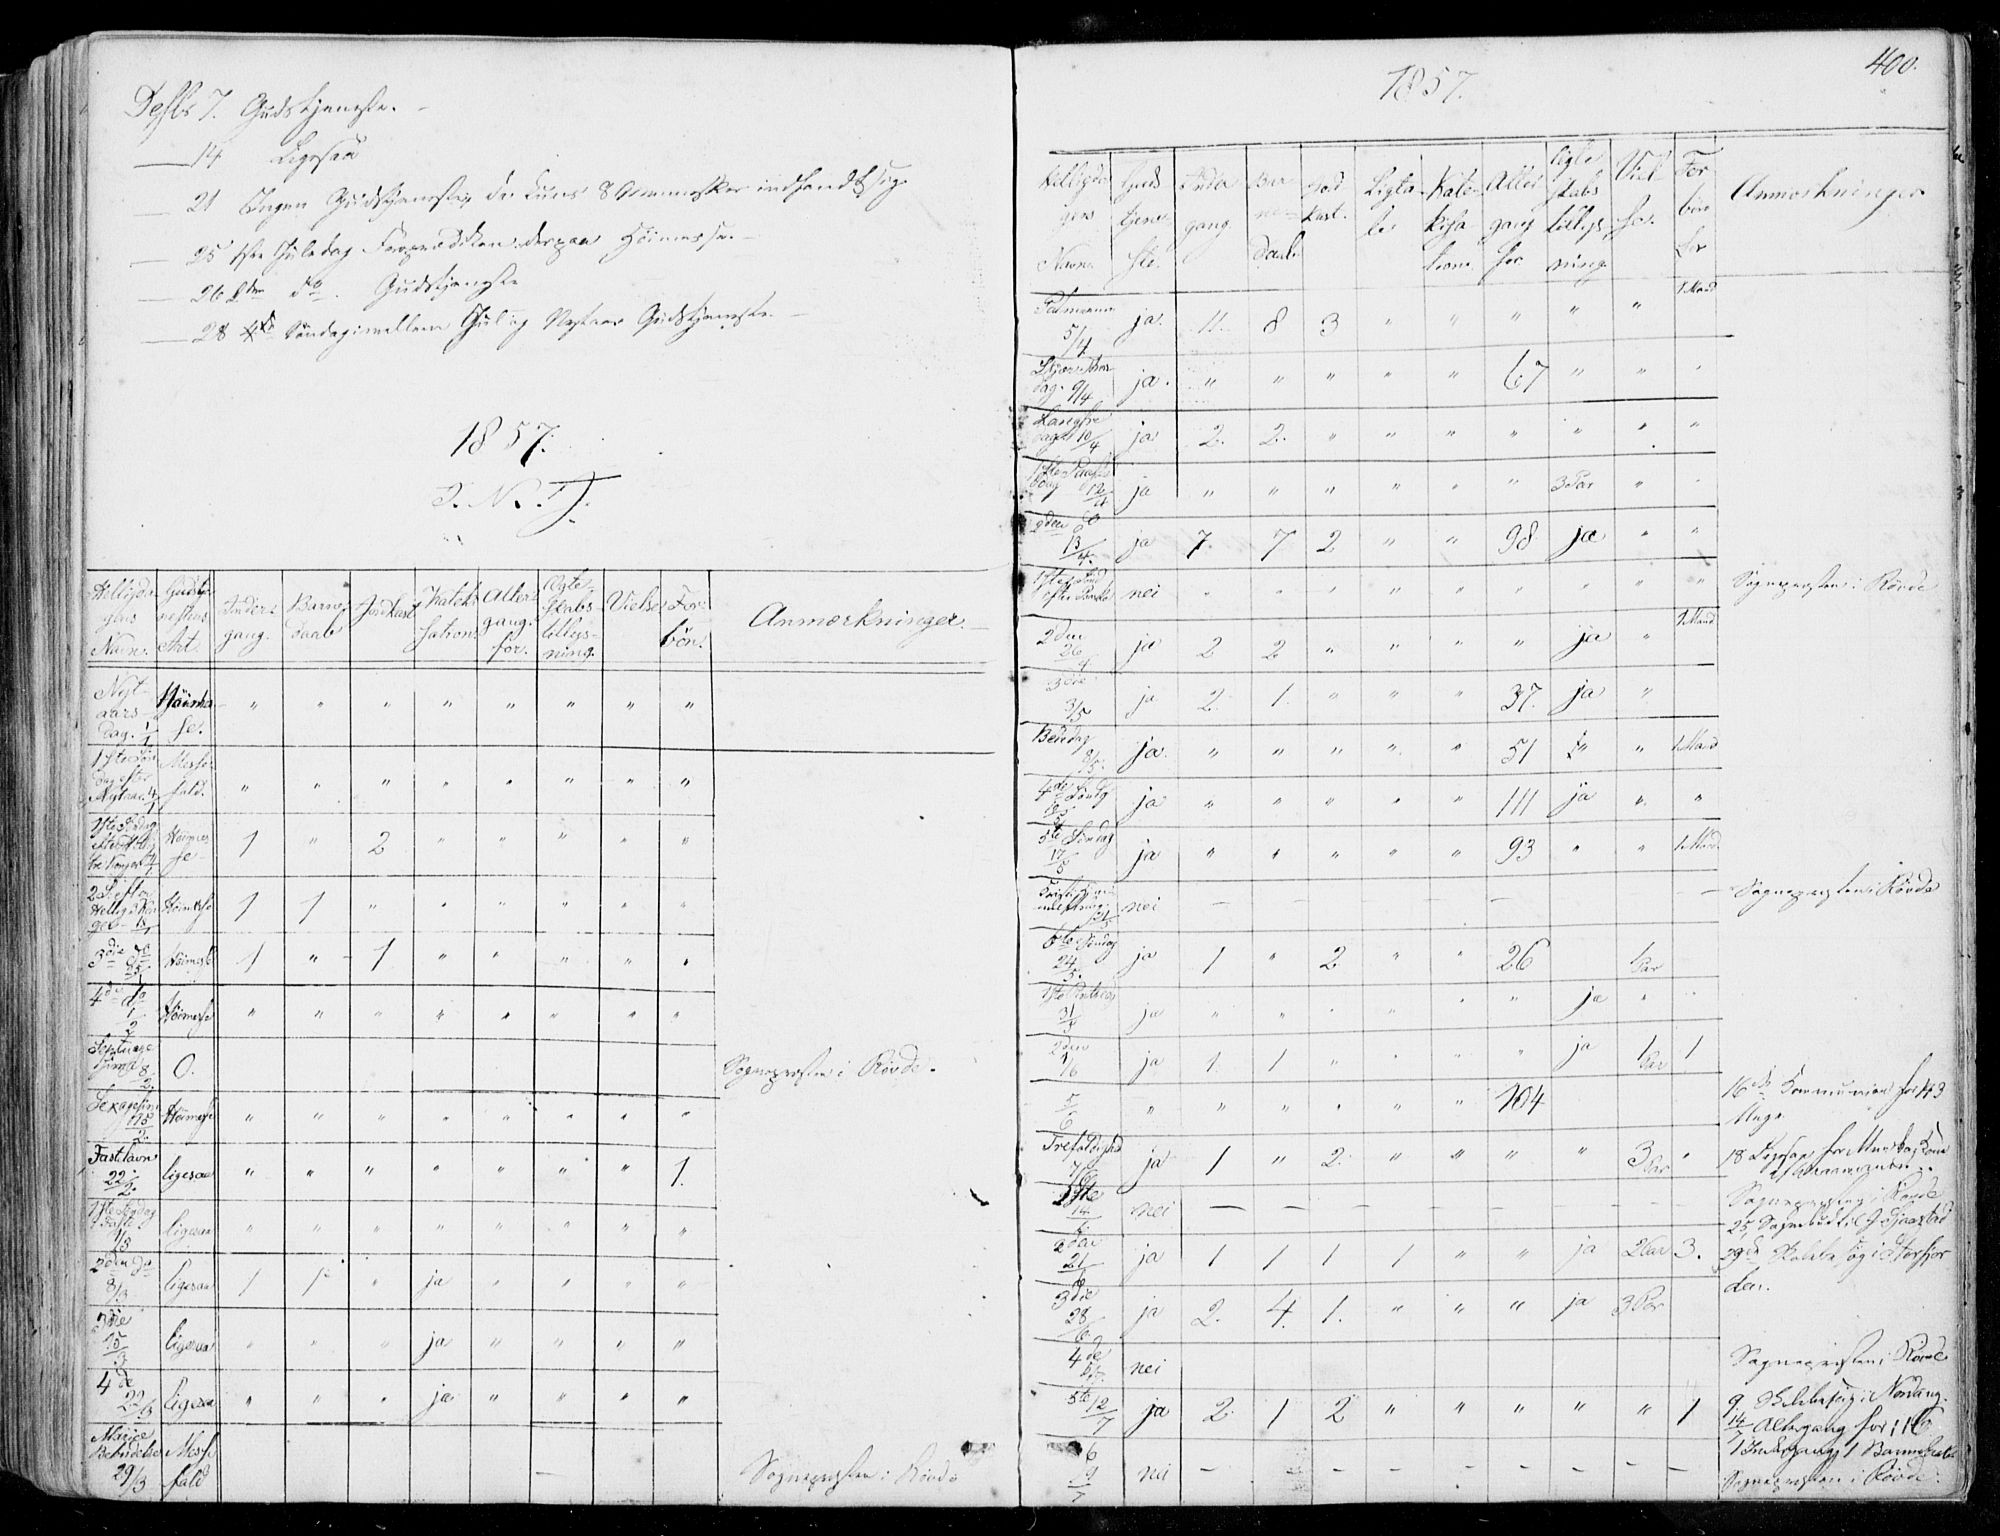 Gudstjeneste.
14 Ligesaa
21 Ingen Gudstjeneste, da kuns 8 Mennesker indfandt sig.
25 1ste Juledag Froprædiken derpaa Höimesse.
26 2den do. Gudstjeneste
28 Söndag imellem Juul og Nytaar Gudstjeneste.
1857.
I. N. J.
Helligda- gens Navn. | Gudstje- nestens Art. | Inder- gang. | Barne- daab | Jordkast | Kateki- sation. | Alter- gang. for. | Ægte- skabs- tillys- ning. | Vielse | For- bön. | Anmærkninger.
Nyt- aars- Dag. 1/1 | Höimes- se. | " | " | " | " | " | " | " | "
1ste Sön- dag efter Nytaar 4/1 | Messe- fald. | " | " | " | " | " | " | " | "
1ste Söndag | Höimes- se | 1 | " | 2 | " | " | " | " | "
2 S. efter Hellig 3 Kon- ger 18/1 | Höimesse | 1 | 1 | " | " | " | " | " | "
3die do 25/1 | Höimesse | 1 | " | 1 | " | " | " | " | "
4de do 1/2 | Höimesse | " | " | " | " | " | " | " | "
Septuage- sima 8/2. | O. | Sognepresten i Rövde.
Sexagesima 15/2. | Höimesse | " | " | " | " | " | " | " | "
Fastelavn 22/2. | ligesaa | " | " | " | " | " | " | " | 1.
1ste Söndag i Faste 1/3 | ligesaa | " | " | " | " | " | " | " | "
2den do 8/3 | ligesaa | 1 | 1 | " | ja | " | " | " | "
3die 15/3 | ligesaa | " | " | " | ja | " | " | " | "
4de 22/3 | ligesaa | " | " | " | ja | " | " | " | "
Mariæ Bebudelse 29/3 | Messe fald | Sognepresten i Rövde
400.
1857.
Helligda- gens Navn. | Guds tjene- ste. | Inder gang. | Bar ne- daab | Jord kast. | Ligta- le | Kate- kisa tion. | Alter gang for | Ægte skabs tillys ning. | Viel- se. | For bön for | Anmærkninger
Palmesön. 5/4 | ja. | 11. | 8 | 3 | " | " | " | " | " | 1 Mand
Skjær-Thors dag. 9/4 | ja. | " | " | " | " | " | 67 | " | " | "
Langfre dag 10/4 | ja | 2. | 2. | " | " | " | " | " | " | "
1ste Paaske dag 12/4 | ja | " | " | " | " | " | " | 3 Par | " | "
2den do 13/4. | ja | 7. | 7 | 2 | " | " | 98 | ja | " | "
1ste Sönd efter Paaske | nei | " | " | " | " | " | " | " | " | " | Sognepresten i Rövde
2den 26/4 | ja | 2 | 2 | " | " | " | " | ja | " | 1 Mand
3die 3/5 | ja | 2. | 1. | " | " | " | 37. | ja | "
Bededag 8/5. | ja. | " | " | " | " | " | 51 | " | " | 1 Mand
4de Söndg 10/5 | ja | " | " | " | " | " | 111 | ja | " | "
5te Söndag 17/5 | ja | " | " | " | " | " | 93 | " | " | 1 Mand
Kristi Him- melfart 21/5 | nei | – | – | – | – | – | – | – | – | – | Sognepresten i Rövde
6te Söndag 24/5. | ja | 1 | " | 2 | " | " | 26 | 1 Par
1ste Pintsedag 31/5 | ja | " | " | " | " | " | " | ja | " | "
2den 1/6 | ja | 1 | 1 | " | " | " | " | ja | 1 Par | 1
5/6 | " | " | " | " | " | " | 104 | 16de Kommunion for 43 Unge
Trefoldighed 7/6 | ja | 1 | " | 2. | " | " | " | " | 3 Par | " | 18 Ligesaa
1ste 14/6. | nei | – | – | – | – | – | – | – | – | Sognepresten i Rövde
25 Sognebud til
2den 21/6 | ja | 1 | 1 | 1 | 1 | " | " | ja | 2 Par | 3. | 29de Skolebesög i Storfjor den.
3die 28/6. | ja | 2. | 4. | 1. | " | " | " | ja | 3 Par
4de 5/7. | nei | Sognepresten i Rövde
5te 12/7 | ja | 2. | 1 | 2 | " | " | " | " | " | 1 | 9. Skolebesög i Nordang.
14/7 Altergang for 16
1 Indergang 1 Barnedaab
6 19/7 | nei | – | – | – | – | – | – | – | – | – | Sognepresten i Rövde.